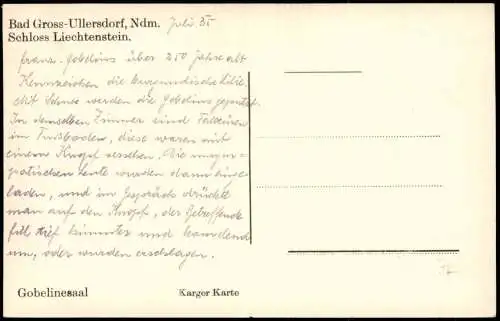 Bad Gross-Ullersdorf, Ndm. Juli 35
Schloss Liechtenstein.
franz. Gobelins über 250 Jahre alt
Kennzeichen die burgundische Lilie
Mit werden die Gobelins
In demselben Zimmer sind Falltüren
im Fußboden, diese waren mit
einem Knopf versehen. Die unsym-
patischen Leute wurden dann einge-
laden, und im Gespräch drückte
man auf den Knopf, der Betreffende
fiel tief hinunter und kam dort
um, oder wurden erschlagen.
Gobelinesaal
Karger Karte